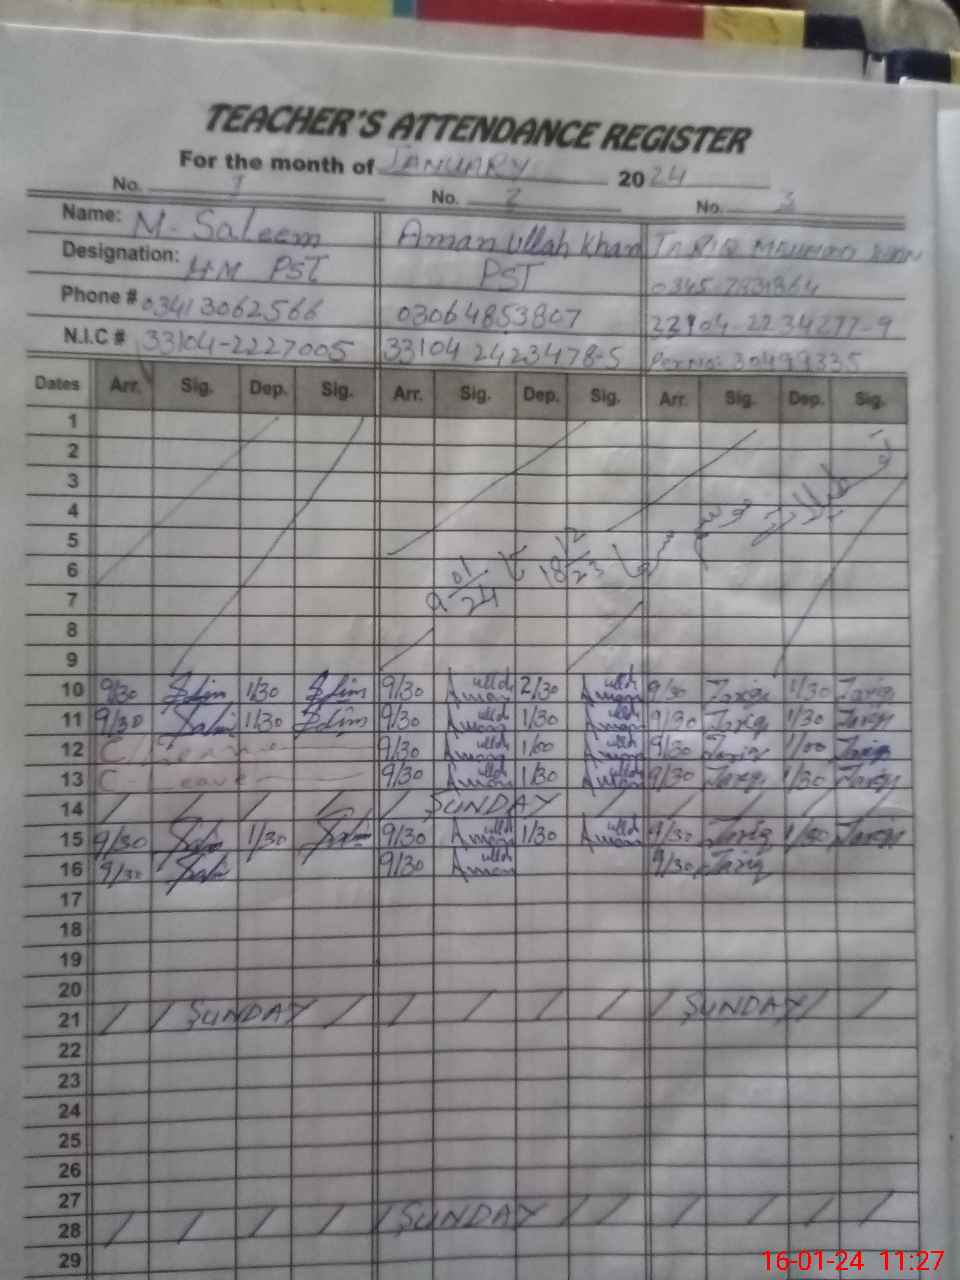 TEACHER'S ATTENDANCE REGISTER
For the month of JANUARY 2024
No. 1 No. 2 No. 3
Name: M. Saleem Aman ullah Khan TARIQ MEHMOOD
Designation: HM PST PST
Phone # 03413062566 03064853807
N.I.C # 33104-2227005 33104 2423478-5 Per No: 30499335
Dates Arr. Sig. Dep. Sig. Arr. Sig. Dep. Sig. Arr. Sig. Dep. Sig.
1
2
3
4
5
6
7
8
9
تعطیلات موسم سرما 18 12/23 تا 9 01/24
10 9/30 1/30 9/30 Aman ullah 2/30 Aman ullah 9/30 Tariq 1/30 Tariq
11 9/30 Salim 1/30 9/30 Aman ullah 1/30 Aman ullah 9/30 Tariq 1/30 Tariq
12 C Leave 9/30 Aman ullah 1/00 Aman ullah 9/30 Tariq 1/00 Tariq
13 C-Leave 9/30 Aman ullah 1/30 Aman ullah 9/30 Tariq 1/30 Tariq
14 SUNDAY
15 9/30 1/30 9/30 Aman ullah 1/30 Aman ullah 9/30 Tariq 1/30 Tariq
16 9/30 9/30 Aman ullah 9/30 Tariq
17
18
19
20
21 SUNDAY SUNDAY
22
23
24
25
26
27
28 SUNDAY
29
16-01-24 11:27